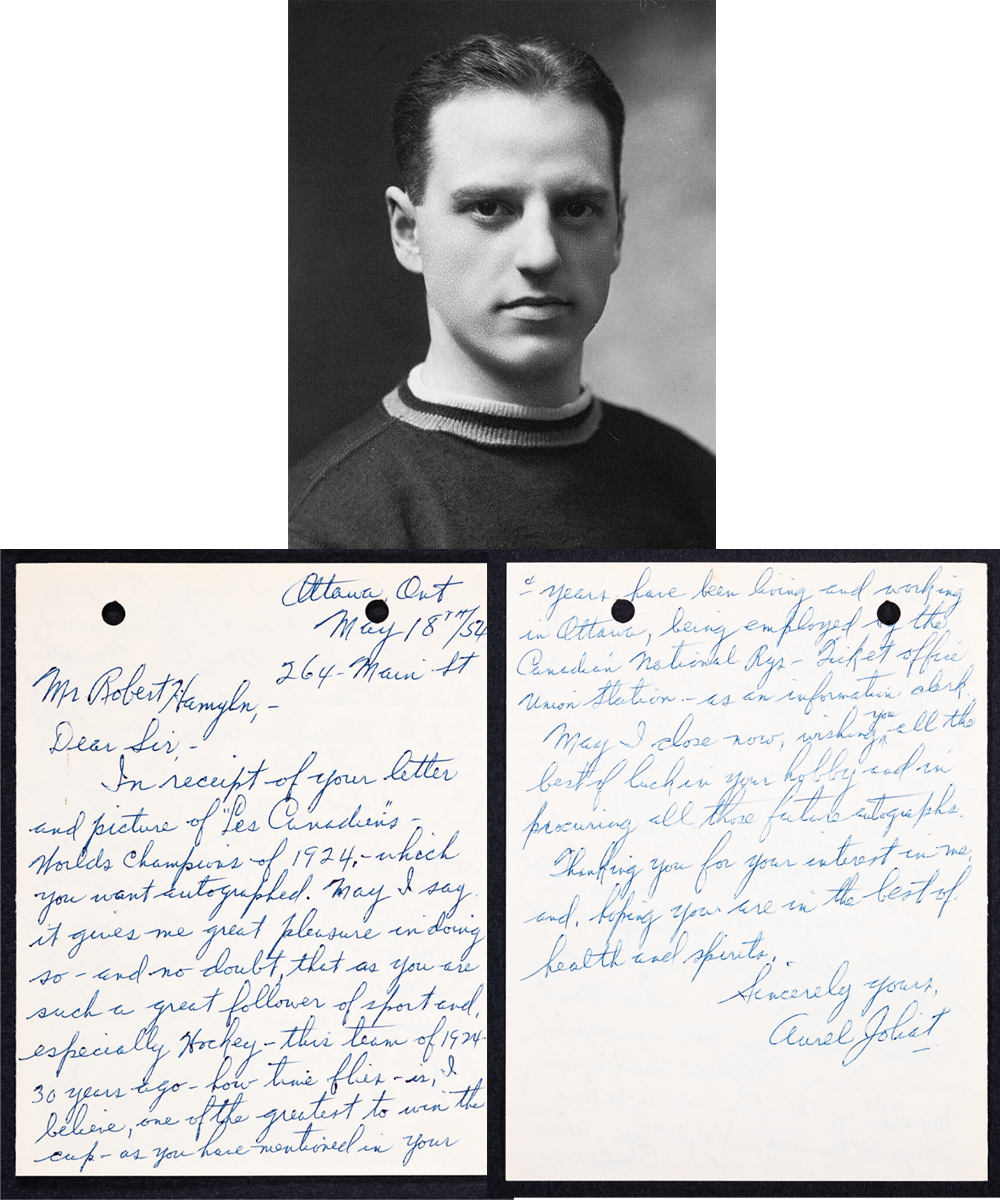 Ottawa, Ont
May 18TH/54
264 - Main St
Mr Robert Hamyln, -
Dear Sir, -
In receipt of your letter
and picture of "Les Canadiens" -
Worlds Champions of 1924, - which
you want autographed. May I say
it gives me great pleasure in doing
so - and no doubt, that as you are
such a great follower of sport and,
especially Hockey - this team of 1924 -
30 years ago - how time flies - is, I
believe, one of the greatest to win the
cup - as you have mentioned in your
years, have been living and working
in Ottawa, being employed by the
Canadian National Rys - Ticket office
Union Station - as an information clerk.
May I close now, wishing you all the
best of luck in your hobby and in
procuring all those future autographs.
Thanking you for your interest in me,
and, hoping you are in the best of
health and spirits.
Sincerely yours,
Aurel Joliat